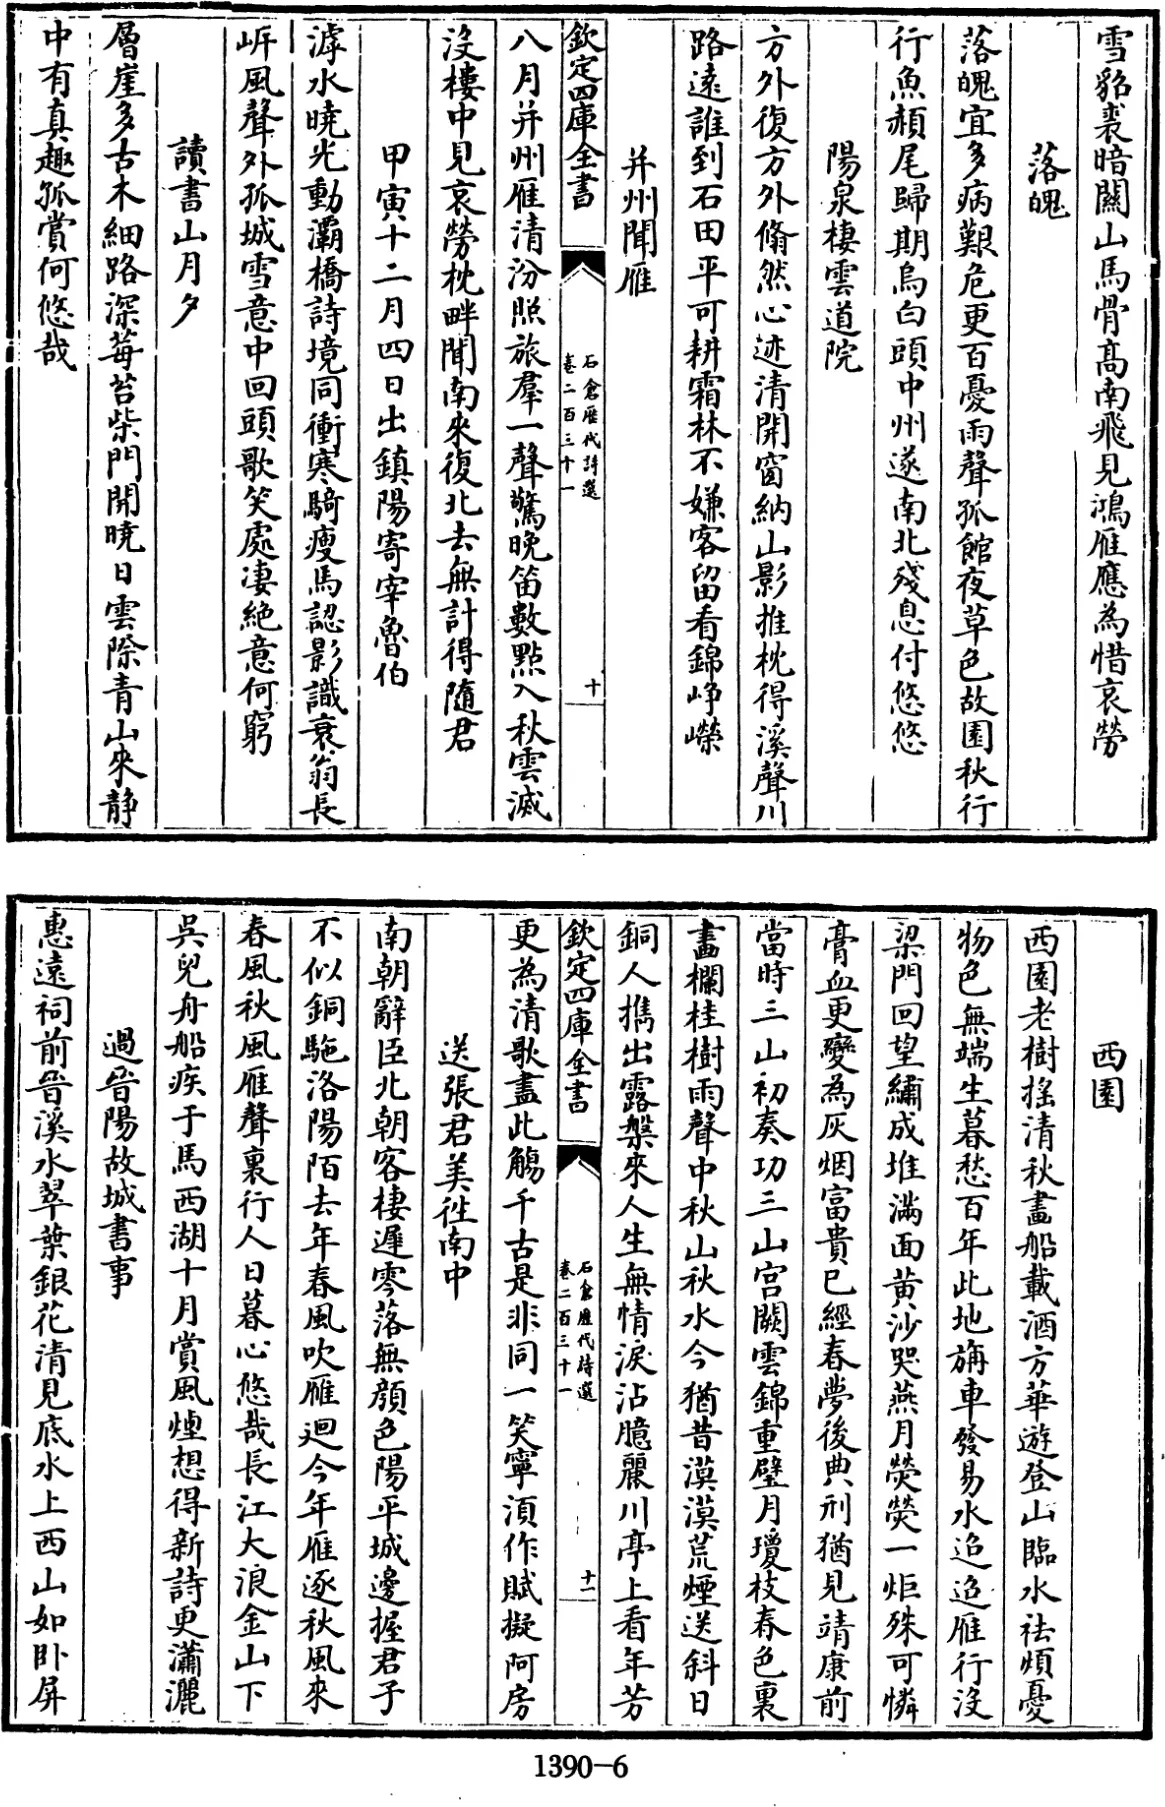 雪貂裘暗闗山馬骨髙南飛見鴻雁應為惜哀勞
落魄
落魄宜多病艱危更百憂雨聲孤館夜草色故園秋行
行魚頳尾歸期烏白頭中州遂南北殘息付悠悠
陽泉棲雲道院
方外復方外翛然心迹清開窗納山影推枕得溪聲川
路逺誰到石田平可耕霜林不嫌客留看錦峥嶸
并州聞雁
欽定四庫全書
石倉歴代詩選
卷二百三十一
十
八月并州雁清汾照旅羣一聲驚晚笛數點入秋雲滅
没樓中見哀勞枕畔聞南來復北去無計得隨君
甲寅十二月四日出鎮陽寄宰魯伯
滹水曉光動灞橋詩境同衝寒騎瘦馬認影識衰翁長
岍風聲外孤城雪意中回頭歌笑處凄絶意何窮
讀書山月夕
層崖多古木細路深莓苔柴門開曉日雲際青山來静
中有真趣孤賞何悠哉
西園
西園老樹揺清秋畫船載酒方華遊登山臨水祛煩憂
物色無端生暮愁百年此地旃車發易水迢迢雁行没
梁門回望繡成堆滿面黄沙哭燕月熒熒一炬殊可憐
膏血更變為灰烟富貴已經春夢後典刑猶見靖康前
當時三山初奏功三山宫闕雲錦重璧月瓊枝春色裏
畵欄桂樹雨聲中秋山秋水今猶昔漠漠荒煙送斜日
銅人攜出露槃來人生無情淚沾臆麗川亭上看年芳
欽定四庫全書
石倉歴代詩選
卷二百三十一
十一
更為清歌盡此觴千古是非同一笑寧須作賦擬阿房
送張君美往南中
南朝辭臣北朝客棲遲零落無顔色陽平城邊握君手
不似銅駞洛陽陌去年春風吹雁迴今年雁逐秋風來
春風秋風雁聲裏行人日暮心悠哉長江大浪金山下
吳兒舟船疾于馬西湖十月賞風煙想得新詩更瀟灑
過晉陽故城書事
惠逺祠前晉溪水翠葉銀花清見底水上西山如卧屏
1390-6